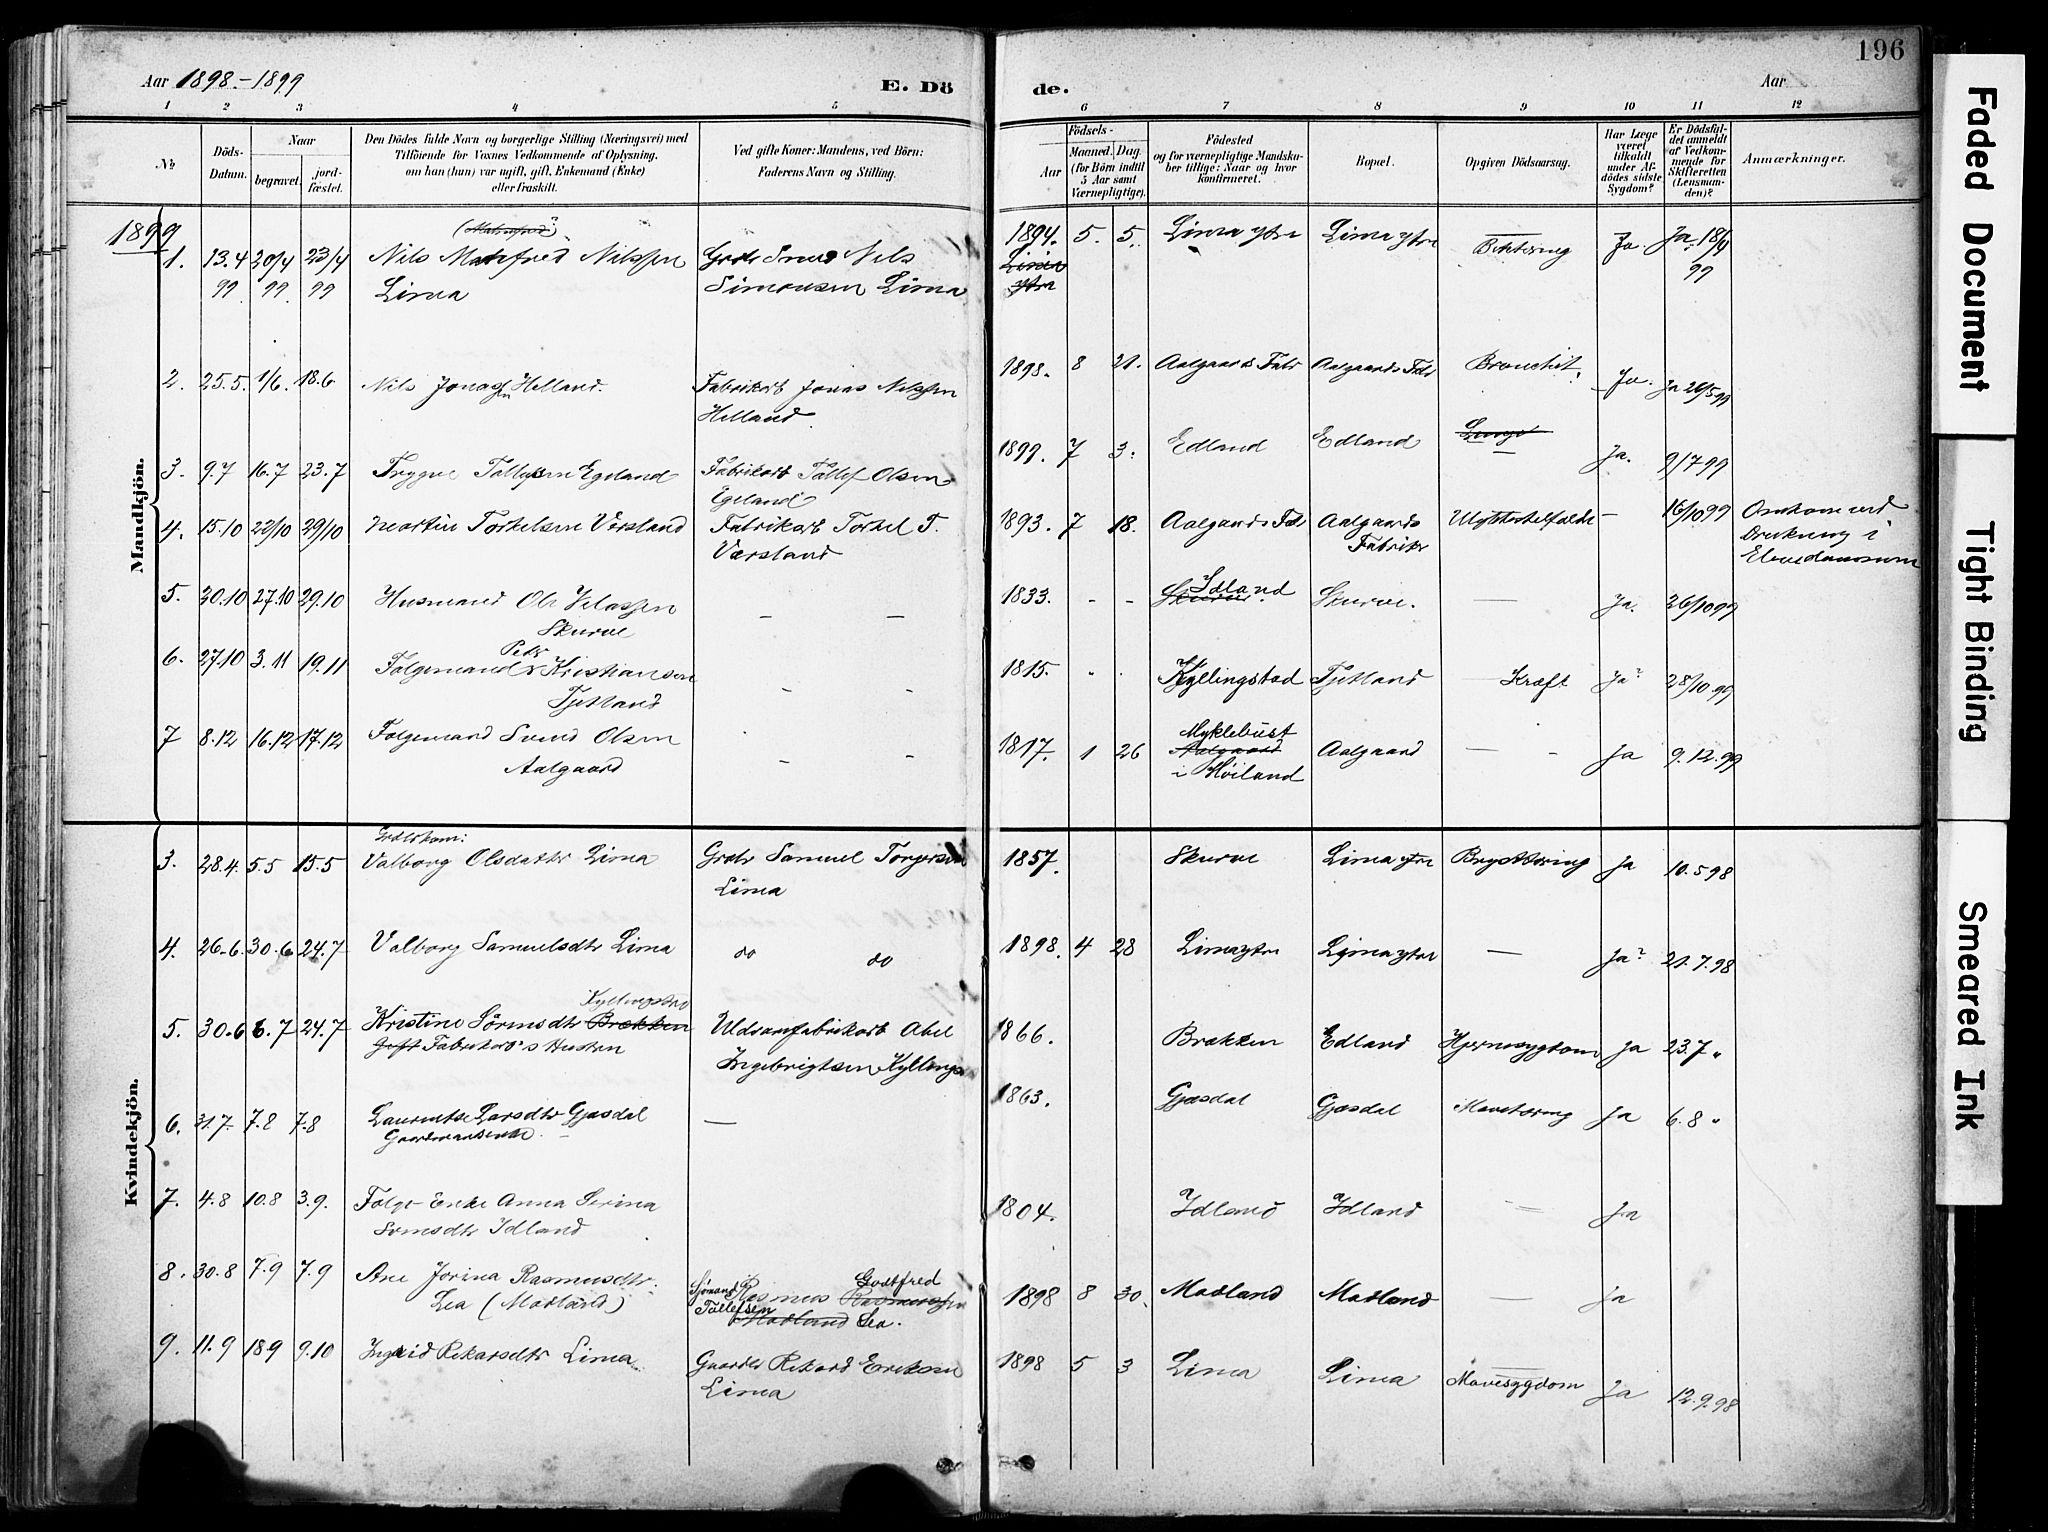 196
Aar 1898-1899 E. Dö de. Aar
1 2 3 4 5 6 7 8 9 10 11 12
№ Döds-Datum. Naar begravet. jordfæstet. Den Dödes fulde Navn og borgerlige Stilling (Næringsvei) med Tilföiende for Voxnes Vedkommende af Oplysning, om han (hun) var ugift, gift, Enkemand (Enke) eller fraskilt. Ved gifte Koner: Mandens, ved Börn: Faderens Navn og Stilling. Födsels- Aar Maaned. Dag (for Börn indtil 5 Aar samt Værnepligtige). Födested og for værnepligtige Mandskaber tillige: Naar og hvor konfirmeret. Bopæl. Opgiven Dödsaarsag. Har Læge været tilkaldt under Afdödes sidste Sygdom? Er Dödsfaldet anmeldt af Vedkommende for Skifteretten (Lensmanden)? Anmærkninger.
Mandkjön.
1899
1. 13.4 99 20/4 99. 23/4 99 Nils Manfred Nilssen Lima Nils Simonsen Lima 1894. 5. 5. Lima ytre Lima ytre Ja Ja 18/4 99
2. 25.5. 1/6. 18.6 Nils Jonassen Helland. Fabrikarb Jonas Nilssen Helland 1898. 8 21. Aalgaards Fabr Aalgaards Fabr Bronchit. Ja. Ja 26/5 99
3. 9.7 16.7 23.7 Trygve Tollefsen Egeland Fabrikarb Tollef Olsen Egeland 1899. 7 3. Edland Edland Ja. 9/7 99
4. 15.10 22/10 29/10 Martin Torkelsen Værsland Fabrikarb Torkel T. Værsland 1893. 7 18. Aalgaards Fab Aalgaards Fabrikr Ulykkestilfælde - 16/10 99 Omkom ved Drukning i Elvedammen
5. 20.10 27.10 29.10 Husmand Ole Skurve - - 1833. - - Idland Skurve. - Ja. 26/10 99
6. 27.10 3.11 19.11 Folgemand Peder Kristiansen Tjetland - - 1815. Kyllingstad Tjetland Kræft Ja? 28/10.99
7 8.12 16.12 17.12 Folgemand Svend Olsen Aalgaard - - 1817. 1 26 Myklebust Aalgaard i Høiland Aalgaard - - Ja 9.12.99
Kvindekjön.
3. 28.4. 5.5 15.5 Valborg Olsdatter Lima Grdbr Samuel Torgersen Lima 1857. Skurve Lima ytre Brysttæring Ja 10.5.98
4. 26.6. 30.6 24.7 Valborg Samuelsdtr Lima do do 1898. 4 28 Lima ytre Lima ytre - Ja? 21.7.98
5. 30.6 6.7 24.7 Kristine Sörensdtr Brækken Kyllingstad Gift Fabrikarb's Hustru Uldvarefabrikarb Abel Ingebrigtsen Kyllings 1866. Brækken Edland Hjernesygdom Ja 23.7 "
6. 31.7. 7.8 7.8 Laurentse Larsdtr Gjesdal Gaardmandsenke. - 1863. Gjesdal Gjesdal Mavetæring Ja 6.8 "
7. 4.8 10.8 3.9. Folge Enke Anna Serina Idland 1804. Idland Idland - Ja
8. 30.8 7.9 7.9 Ane Jorina Rasmusdtr Lea (Madland) Sjömand Rasmus Godtfred Rasmussen Tollefsen Madland Lea. 1898 8 30. Madland Madland - Ja
9. 11.9 18.9 9.10 Ingrid Rikardsdtr Lima Gaardbr Rikard Eriksen Lima 1898 5 3 Lima Lima Mavesygdom Ja 12.9.98
Faded Document
Tight Binding
Smeared Ink